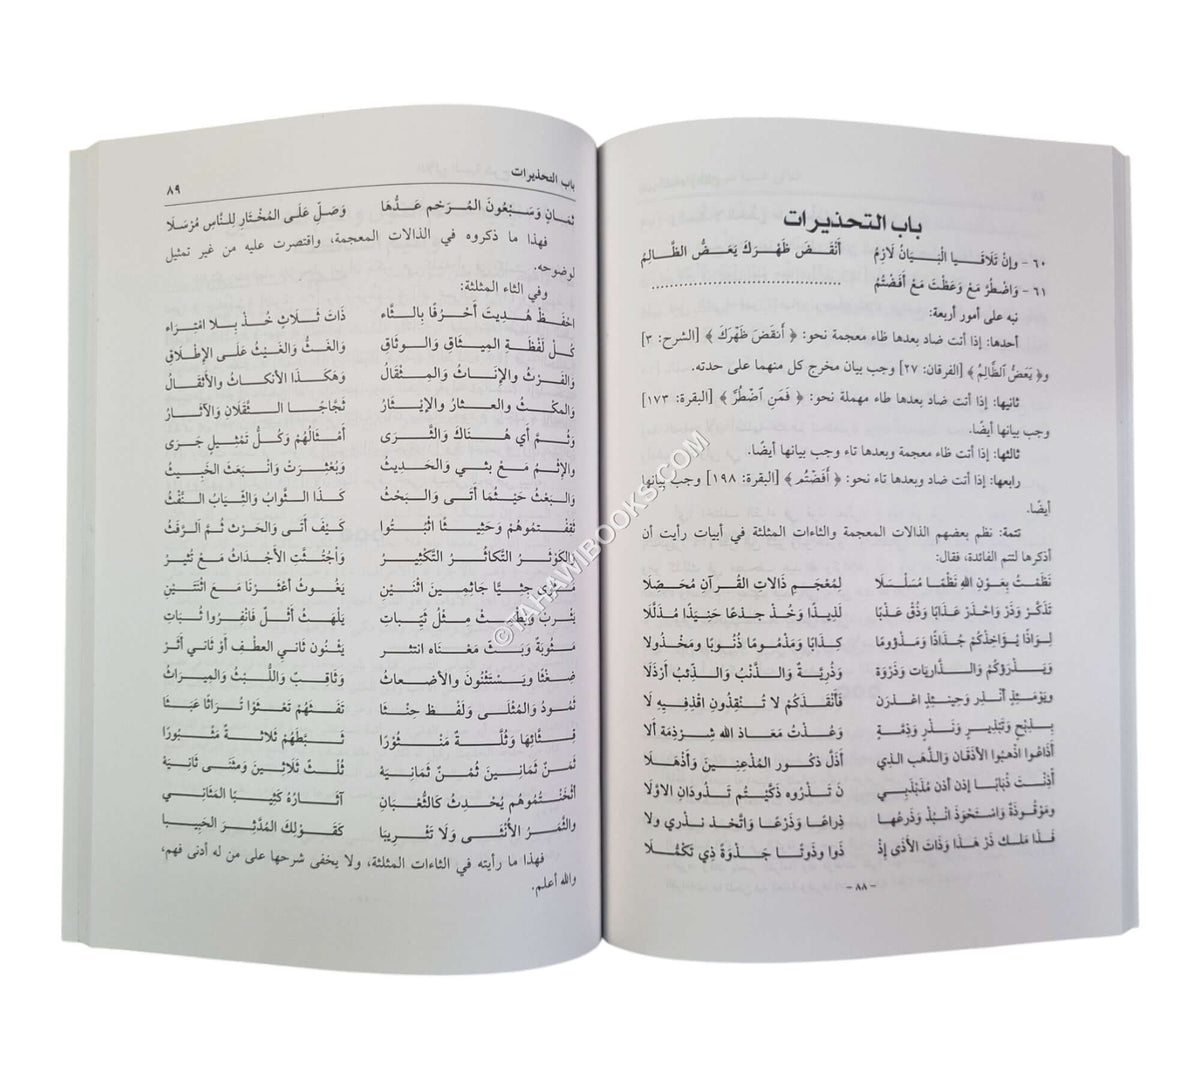 باب التحذيرات
٦٠ - وإنْ تَلَاقَـيـا الْبَـيَـانُ لَازِمُ أَنْقَـضَ ظَهْـرَكَ يَـعَـضُّ الظَّـالِمُ
٦١ - وَاضْطُرَّ مَـعَ وَعَظْتَ مَـعَ أَفَضْتُـمُ ........................................
نبه على أمور أربعة:
أحدها: إذا أتت ضاد بعدها ظاء معجمة نحو: ﴿ أَنقَضَ ظَهْرَكَ ﴾ [الشرح: ٣]
و﴿ يَعَضُّ ٱلظَّالِمُ ﴾ [الفرقان: ٢٧] وجب بيان مخرج كل منهما على حدته.
ثانيها: إذا أتت ضاد بعدها طاء مهملة نحو: ﴿ فَمَنِ ٱضْطُرَّ ﴾ [البقرة: ١٧٣]
وجب بيانها أيضًا.
ثالثها: إذا أتت ظاء معجمة وبعدها تاء وجب بيانها أيضًا.
رابعها: إذا أتت ضاد وبعدها تاء نحو: ﴿ أَفَضْتُم ﴾ [البقرة: ١٩٨] وجب بيانها
أيضًا.
تتمة: نظم بعضهم الذالات المعجمة والثاءات المثلثة في أبيات رأيت أن
أذكرها لتتم الفائدة، فقال:
نَظَمْتُ بِعَوْنِ اللهِ نَظْمًا مُسَلْسَلًا لِمُعْجَمِ ذَالَاتِ القُـرآنِ مُحَصَّلَا
تَذَكَّرْ وَذَرْ وَاحْذَرْ عَذَابًا وَذُقْ عَذْبًا لَذِيذًا وَخُذْ جِذعًا حَنِيذًا مُذَلَّلَا
لِوَاذًا يُؤَاخِذُكُم جُذَاذًا وَمَذْؤُومًا كِذَابًا وَمَذْمُومًا ذُنُوبًا وَمَخْذُولا
وَيَـذْرَؤُكُمْ وَالـذَّارِيَاتِ وَذَرْوَة وَذُرِّيَةً وَالـذَّنْبُ وَالـذِّئبُ أَرْذَلَا
وَيَوْمَئِذٍ أَنْذِر وَحِينَئِذٍ اعْذِرَن فَأَنْقَذَكُمْ لَا تُنْقِذُونِ اقْذِفِيهِ لَا
بِذِبْحٍ وَتَبْذِيرٍ وَنَذْرٍ وَذِمَّةٍ وَعُذْتُ مَعَاذَ الله شِرْذِمَة أَلا
أَذَاعُوا اذْهَبُوا الأذْقَان وَالذَّهَب الذي أَذَلَّ ذُكُور المُذْعِنِين وَأَذْهَلَا
أَذِنْتَ ذُبَابًا إذن أذن مُذَبْذَبِي نَ تَذْرُوه ذَكَّيْتُم تَذُودَانِ الاوَّلَا
وَمَوْقُوذَةٌ وَاسْتَحْوَذَ انْبِذْ وَذَرْعُهَا ذِرَاعًا وَذَرْعًا وَاتَّخذ نذري ولا
فَـذَا مَـلـك ذَرْ هَـذَا وَذَات الأذى إذْ ذَوا وذَوتَا جَـذْوَة ذِي تَكَمُّـلَا
- ٨٨ -
باب التحذيرات ٨٩
ثَمَـانٍ وَسَـبْعُونَ المُـرَخم عَـدُّهَا وَصَلِّ عَلَى المُخْتَارِ لِلنَّاسِ مُرْسَلَا
فهذا ما ذكروه في الذالات المعجمة، واقتصرت عليه من غير تمثيل
لوضوحه.
وفي الثاء المثلثة:
احْفَظْ هُدِيتَ أَحْرُفًا بِالثَّاء ذَاتَ ثَلَاثٍ خُذْ بِلا امْتِرَاء
كُلّ لَفْظَةِ المِيثَاقِ وَالوثَاقِ وَالغَثُّ وَالغَيْثُ عَلَى الإطْلَاق
وَالفَرْثُ وَالإنَاثُ وَالمِثْقَالُ وَهَكَذَا الأنكَاثُ وَالأَثْقَالُ
وَالمكْثُ وَالعِثارُ وَالإيْثَارُ ثَجَّاجًا الثَّقَلَان وَالآثَارُ
وَثُمَّ أَي هُنَاكَ وَالثَّرَى أَمْثَالُهُمْ وَكُلُّ تَمْثِيلٍ جَرَى
وَالإثْمِ مَعْ بَثِّي وَالحَدِيثِ وَبُعْثِرَتْ وَانْبَعَثَ الخَبِيثُ
وَالبَعْثُ حَيْثُمَا أَتَى وَالبَحْثُ كَذَا الثَّوَابُ وَالثِّيَابُ النَّفْثُ
ثَقِفْتُمُوهُمْ وَحَثِيثًا اثْبُتُوا كَيْفَ أَتَى وَالحَرْث ثُمَّ الرَّفَثُ
وَالكَوْثَرُ التَّكَاثُرُ التَّكْثِيرُ وَاجْتُثَّتِ الأَجْدَاثُ مَعْ تُثِيرُ
جِثِيًّا جَاثِمِينَ اثْنَيْنِ يَغُوثَ أَعْثَرْنَا مَعَ اثْنَتَيْنِ
يَثْرِبُ مِثْلُ ثَيِّبَاتِ يَلْهَثْ أَثْلٌ فَانْفِرُوا ثُبَاتِ
مَثُوبَةٌ وَبَثَّ مَعْنَاه انتثر يَثْنُون ثَانِي العطْف أَوْ ثَانِي أَثَر
ضِغْثًا وَيَسْتَثْنُون وَالأَضْغَاثُ وَثَاقِب وَاللُّبْثُ وَالمِيرَاثُ
ثَمُودُ وَالمُثْلَى وَلَفْظ حِنْثًا تَفَثَهُمْ تَعْثَوْا تُرَاثًا عَبَثَا
قِثَّائِهَا وَثُلَّةٌ مَنْثُوْرًا ثَبَّطَهُمْ ثَلاثَةً مَثْبُورًا
ثَمَنٌ ثَمَانِينَ ثُمُنْ ثَمَانِيَة ثُلُثْ ثَلَاثِينَ وَمثْنَى ثَانِيَة
أَثْخَنْتُمُوهُم يُحْدِثُ كَالثُّعْبَانِ آثَارُهُ كَثِيبًا المَثَانِي
وَالثَّمَرُ الأُنْثَى وَلَا تَثْرِيبَا كَقَوْلِكَ المُدَّثِّر الحَبِيبَا
فهذا ما رأيته في الثاءات المثلثة، ولا يخفى شرحها على من له أدنى فهم،
والله أعلم.
©TAHAWIBOOKS.COM